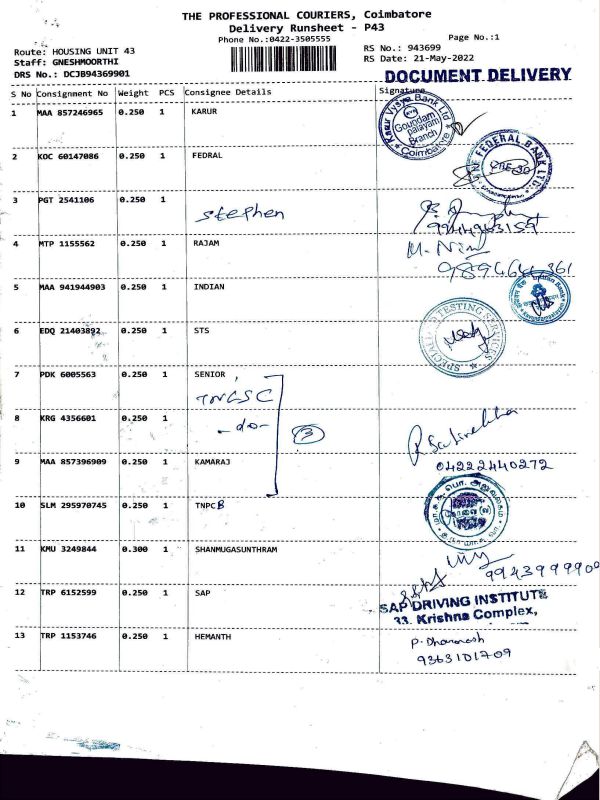 THE PROFESSIONAL COURIERS, Coimbatore
Delivery Runsheet - P43
Phone No.:0422-3505555
Page No.:1
Route: HOUSING UNIT 43
RS No.: 943699
Staff: GNESHMOORTHI
RS Date: 21-May-2022
DRS No.: DCJB94369901
DOCUMENT DELIVERY
S No Consignment No Weight PCS Consignee Details Signature
1 MAA 857246965 0.250 1 KARUR
Karur Vysya Bank Ltd
Goundam palayam Branch
Coimbatore
2 KOC 60147086 0.250 1 FEDRAL
THE FEDERAL BANK LTD.
3 PGT 2541106 0.250 1 Stephen
9944943159
4 MTP 1155562 0.250 1 RAJAM
5 MAA 941944903 0.250 1 INDIAN
Indian Bank
6 EDQ 21403892 0.250 1 STS
TESTING SERVICES
7 PDK 6005563 0.250 1 SENIOR
TNCSC
8 KRG 4356601 0.250 1 -do- 3
9 MAA 857396909 0.250 1 KAMARAJ
04222440272
10 SLM 295970745 0.250 1 TNPCB
11 KMU 3249844 0.300 1 SHANMUGASUNTHRAM
9943999900
12 TRP 6152599 0.250 1 SAP
SAP DRIVING INSTITUTE
33. Krishna Complex,
13 TRP 1153746 0.250 1 HEMANTH
9363101709